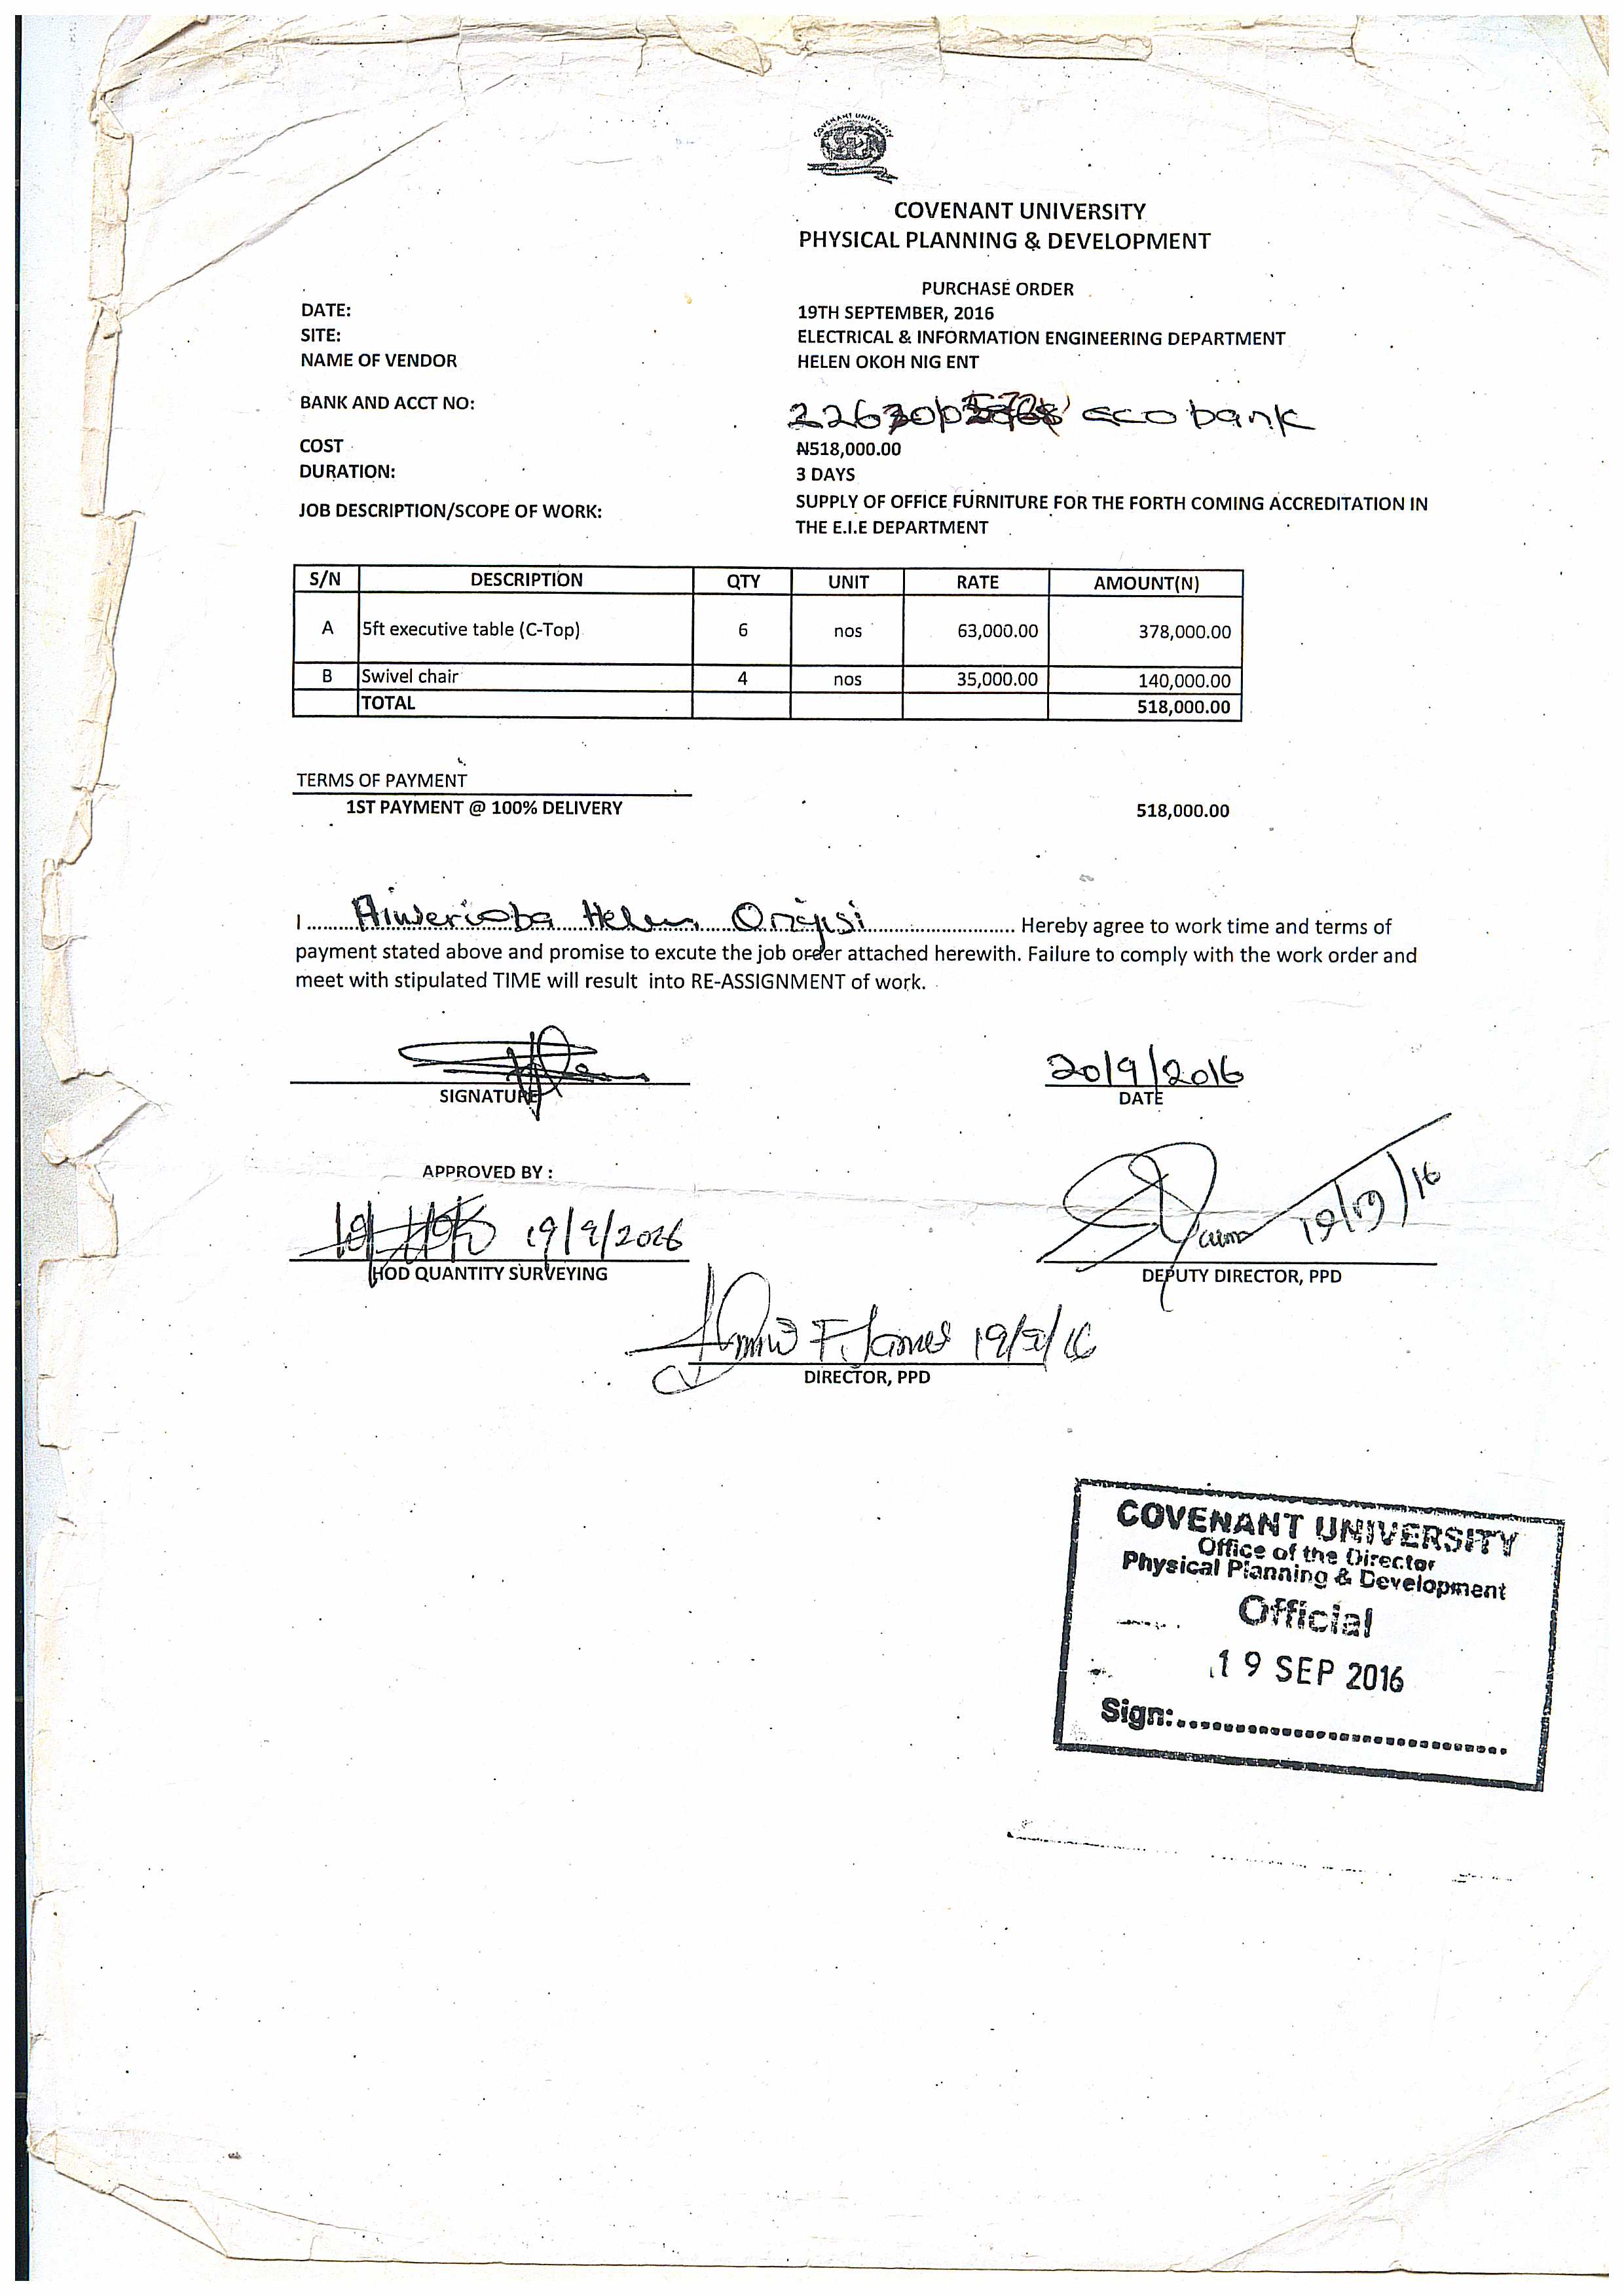 COVENANT UNIVERSITY
COVENANT UNIVERSITY
PHYSICAL PLANNING & DEVELOPMENT
PURCHASE ORDER
DATE: 19TH SEPTEMBER, 2016
SITE: ELECTRICAL & INFORMATION ENGINEERING DEPARTMENT
NAME OF VENDOR HELEN OKOH NIG ENT
BANK AND ACCT NO: eco bank
COST ₦518,000.00
DURATION: 3 DAYS
JOB DESCRIPTION/SCOPE OF WORK: SUPPLY OF OFFICE FURNITURE FOR THE FORTH COMING ACCREDITATION IN
THE E.I.E DEPARTMENT
S/N DESCRIPTION QTY UNIT RATE AMOUNT(N)
A 5ft executive table (C-Top) 6 nos 63,000.00 378,000.00
B Swivel chair 4 nos 35,000.00 140,000.00
TOTAL 518,000.00
TERMS OF PAYMENT
1ST PAYMENT @ 100% DELIVERY 518,000.00
I Helen Hereby agree to work time and terms of
payment stated above and promise to excute the job order attached herewith. Failure to comply with the work order and
meet with stipulated TIME will result into RE-ASSIGNMENT of work.
20/9/2016
SIGNATURE DATE
APPROVED BY :
19/9/2016 19/9/16
HOD QUANTITY SURVEYING DEPUTY DIRECTOR, PPD
F. James 19/9/16
DIRECTOR, PPD
COVENANT UNIVERSITY
Office of the Director
Physical Planning & Development
Official
19 SEP 2016
Sign: